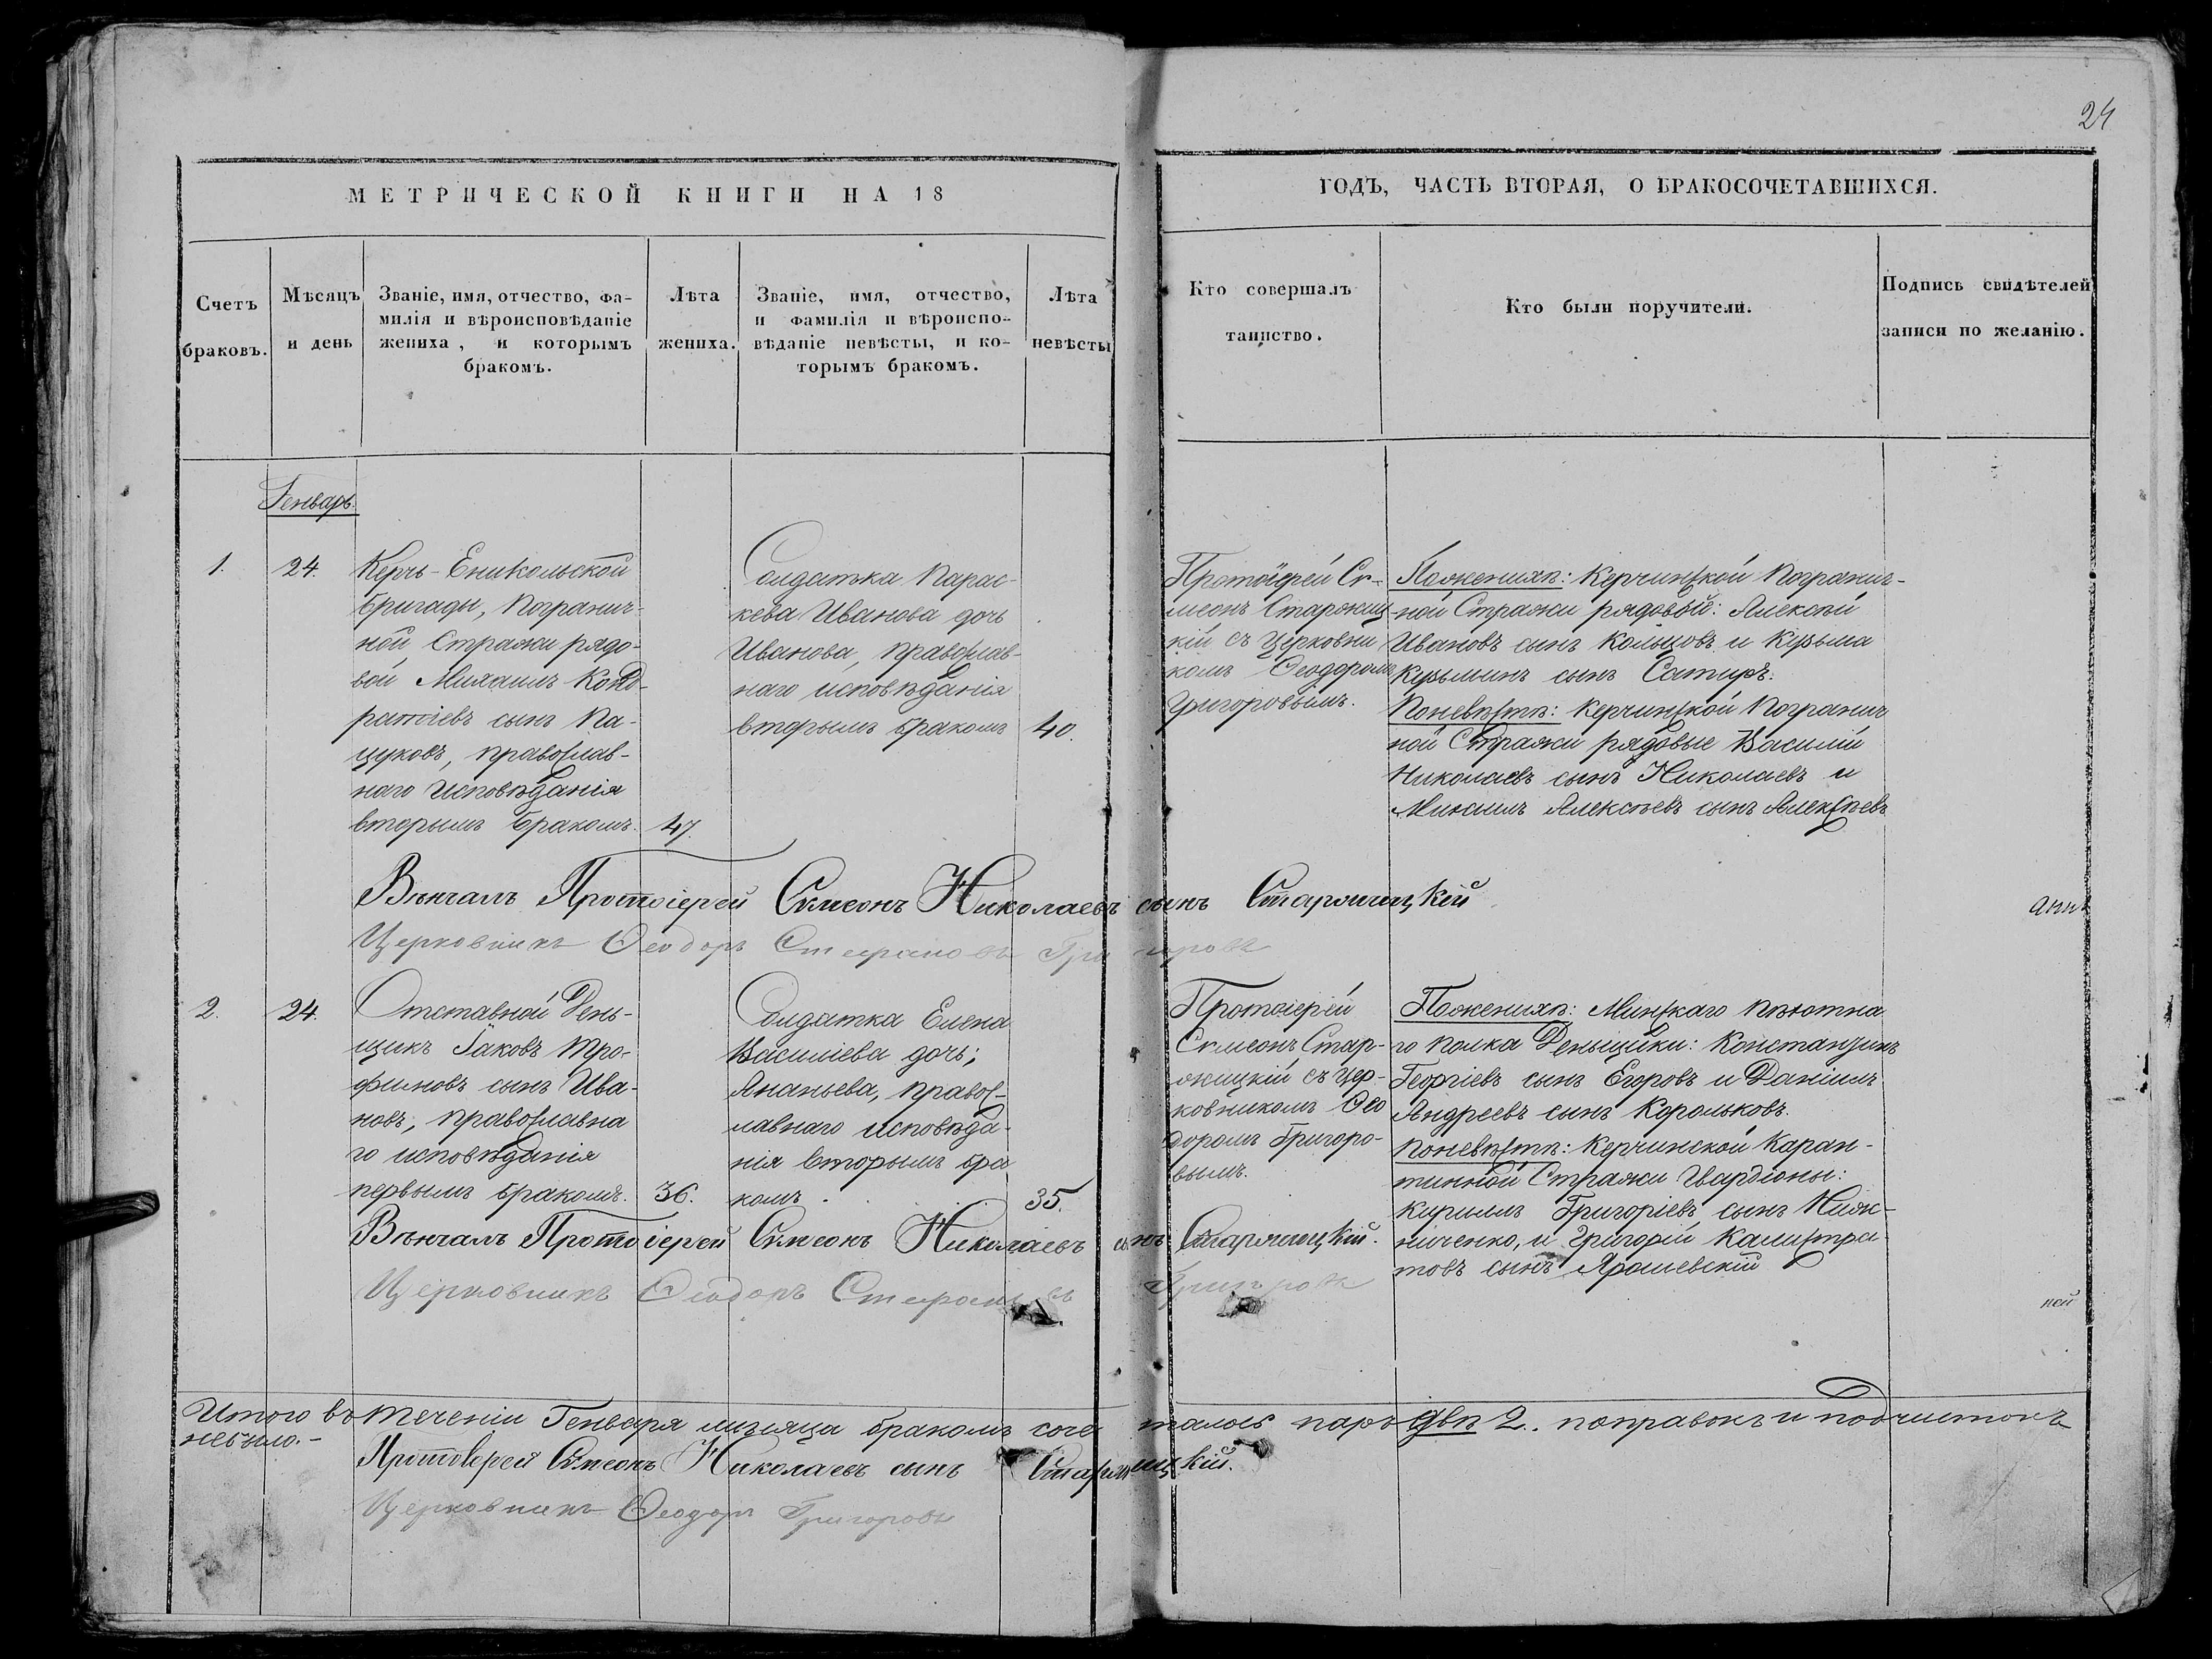 24
МЕТРИЧЕСКОЙ КНИГИ НА 18
ГОДЪ, ЧАСТЬ ВТОРАЯ, О БРАКОСОЧЕТАВШИХСЯ.
Счетъ
браковъ.
Мѣсяцъ
и день
Званіе, имя, отчество, фа-
милія и вѣроисповѣданіе
жениха, и которымъ
бракомъ.
Лѣта
жениха.
Званіе, имя, отчество,
и фамилія и вѣроиспо-
вѣданіе невѣсты, и ко-
торымъ бракомъ.
Лѣта
невѣсты
Кто совершалъ
таинство.
Кто были поручители.
Подпись свидѣтелей
записи по желанію.
Генварь.
1.
24.
Керчь-Еникольской
бригады, погранич-
ной Стражи рядо-
вой Михаилъ Конд-
ратіевъ сынъ Па-
цуковъ, православ-
наго исповѣданія
вторымъ бракомъ.
47.
Солдатка Парас-
кева Иванова дочь
Иванова, православ-
наго исповѣданія
вторымъ бракомъ
40.
Протоіерей Сѵ-
меонъ Старжиц-
кій съ церковни
комъ Ѳеодоромъ
Григоровымъ.
Поженихѣ: Керчинской Погранич-
ной Стражи рядовый: Алексѣй
Ивановъ сынъ Кольцовъ и Кузьма
Кузьминъ сынъ Сатиръ.
Поневѣстѣ: Керчинской Погранич
ной Стражи рядовые Василій
Николаевъ сынъ Николаевъ и
Михаилъ Алексѣевъ сынъ Алексѣевъ
Вѣнчалъ Протоіерей Сѵмеонъ Николаевъ сынъ Старжицкій
Церковникъ Ѳеодоръ Стефановъ Григоровъ
2.
24.
Отставной День-
щикъ Іаковъ Тро-
фимовъ сынъ Ива-
новъ, православна
го исповѣданія
первымъ бракомъ.
36.
Солдатка Елена
Василіева дочь;
Ананьева, правос-
лавнаго исповѣда-
нія вторымъ бра
комъ
35.
Протоіерей
Сѵмеонъ Стар-
жицкій съ цер-
ковникомъ Ѳео
доромъ Григоро-
вымъ.
Поженихѣ: Минскаго пѣхотна
го полка Деньщики: Константинъ
Георгіевъ сынъ Егоровъ и Даніилъ
Андреевъ сынъ Корольковъ.
Поневѣстѣ: Керчинской Каран-
тинной Стражи Гвардіоны:
Кириллъ Григоріевъ сынъ Ниж-
ниченко, и Григорій Калистра
товъ сынъ Ярошевскій
Вѣнчалъ Протоіерей Сѵмеонъ Николаевъ сынъ Старжицкій.
Церковникъ Ѳеодоръ Стефановъ Григоровъ
Итого въ теченіи Генваря мѣсяца бракомъ сочеталось паръ двѣ 2. поправокъ и подчистокъ
небыло.-
Протоіерей Сѵмеонъ Николаевъ сынъ Старжицкій.
Церковникъ Ѳеодоръ Григоровъ